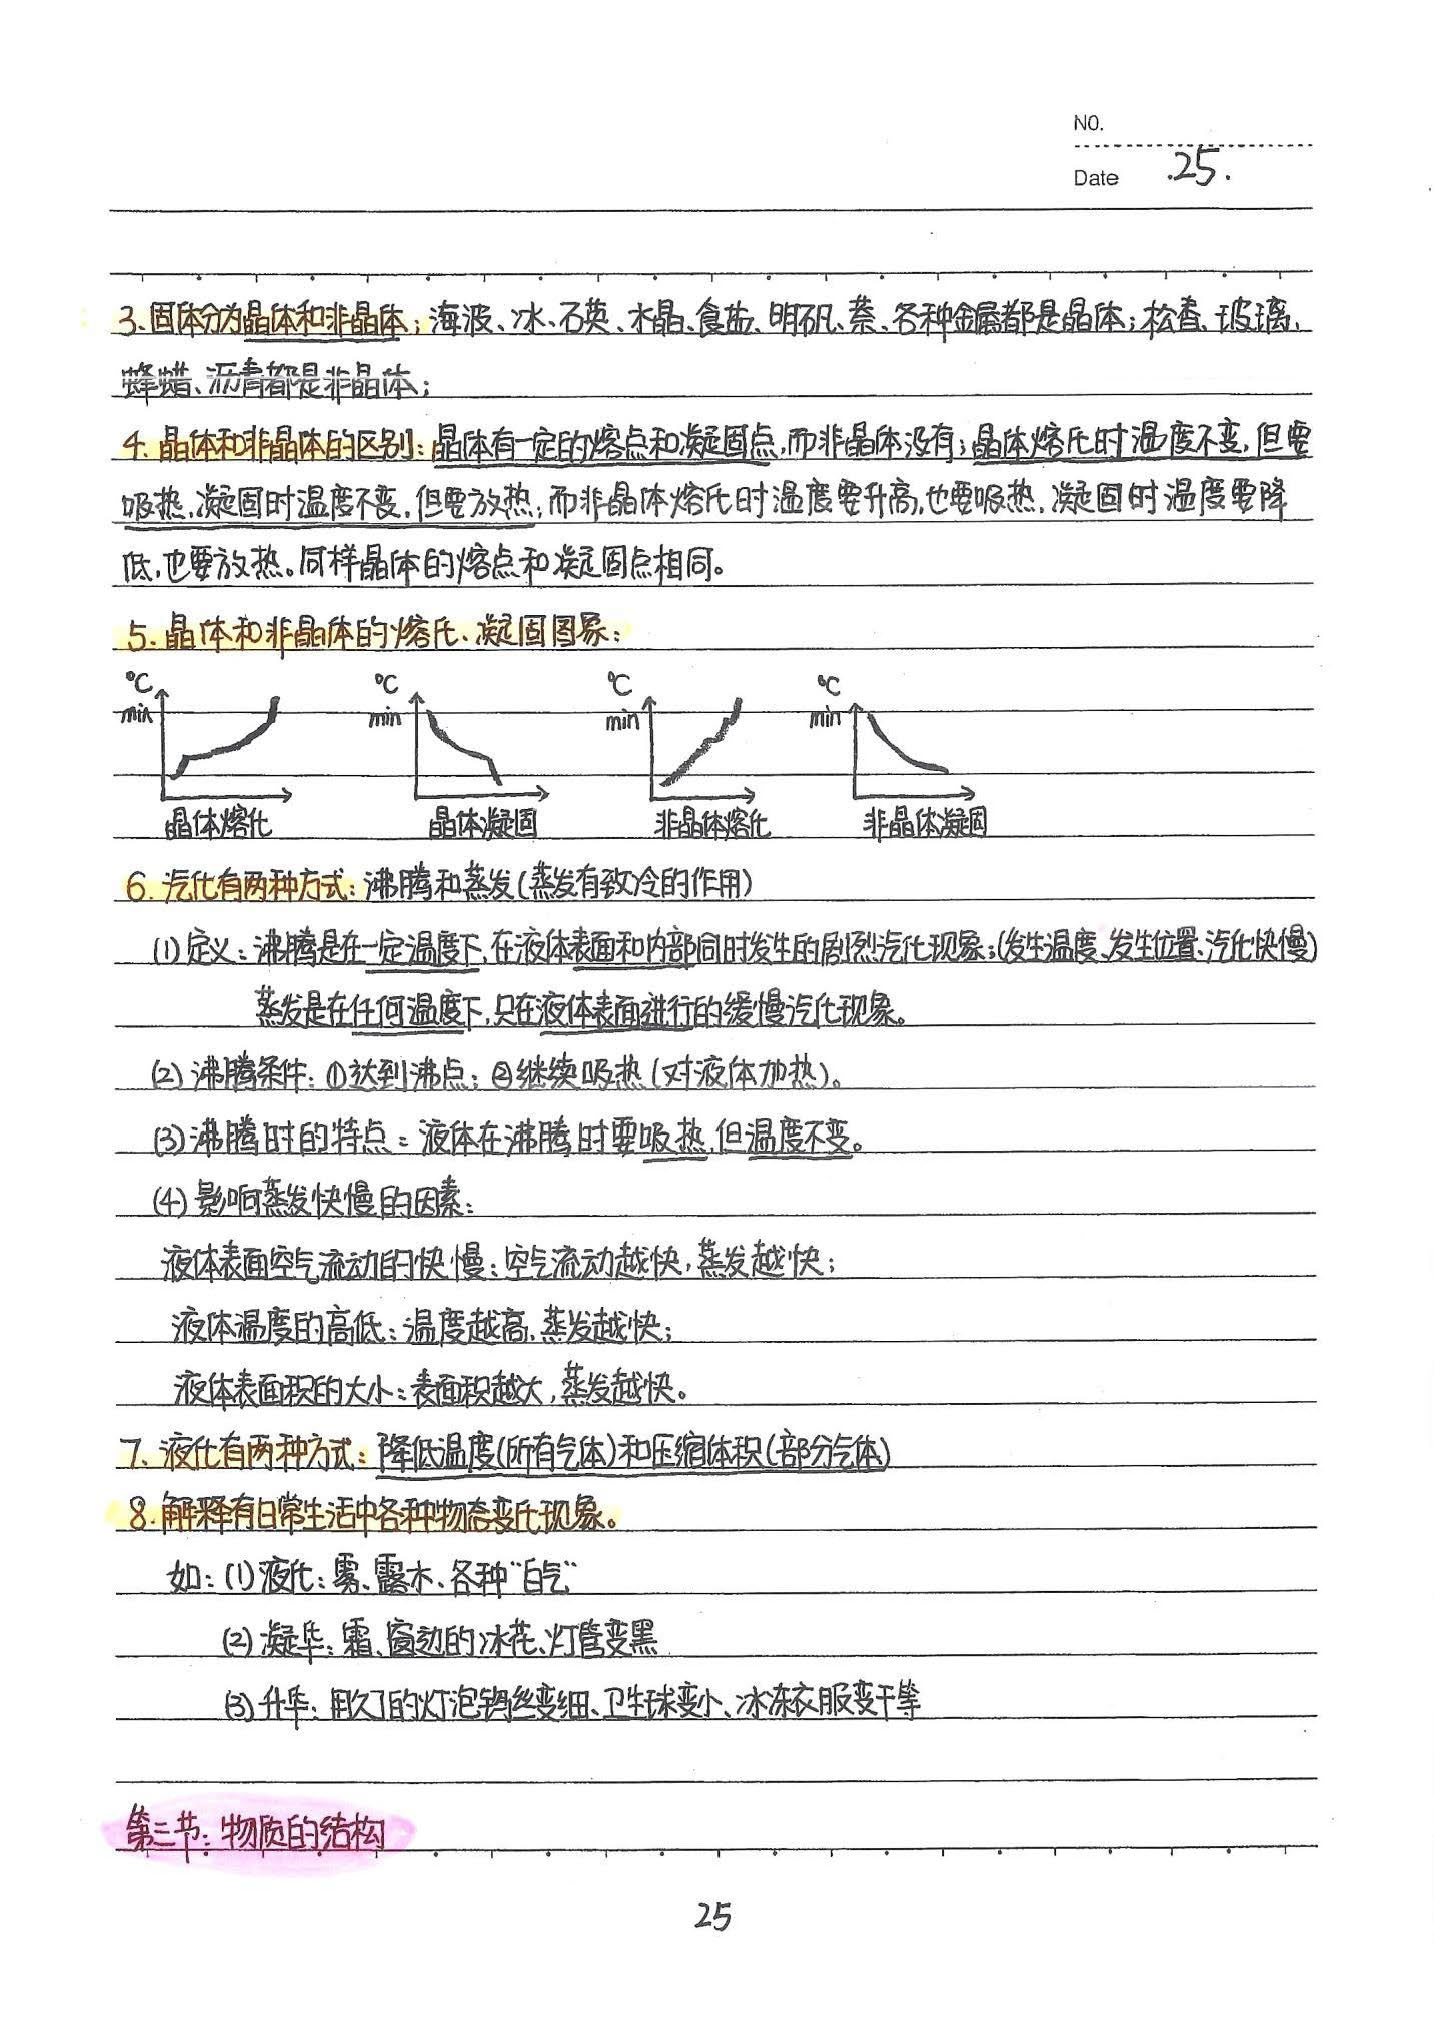 NO.
Date .25.
3.固体分为晶体和非晶体；海波、冰、石英、水晶、食盐、明矾、萘、各种金属都是晶体；松香、玻璃、
蜂蜡、沥青都是非晶体；
4.晶体和非晶体的区别：晶体有一定的熔点和凝固点，而非晶体没有；晶体熔化时温度不变，但要
吸热，凝固时温度不变，但要放热；而非晶体熔化时温度要升高，也要吸热，凝固时温度要降
低，也要放热。同样晶体的熔点和凝固点相同。
5.晶体和非晶体的熔化、凝固图象：
℃ ℃ ℃ ℃
min min min min
晶体熔化 晶体凝固 非晶体熔化 非晶体凝固
6.汽化有两种方式：沸腾和蒸发(蒸发有致冷的作用)
(1)定义：沸腾是在一定温度下，在液体表面和内部同时发生的剧烈汽化现象；(发生温度、发生位置、汽化快慢)
蒸发是在任何温度下，只在液体表面进行的缓慢汽化现象。
(2)沸腾条件：①达到沸点；②继续吸热(对液体加热)。
(3)沸腾时的特点：液体在沸腾时要吸热，但温度不变。
(4)影响蒸发快慢的因素：
液体表面空气流动的快慢：空气流动越快，蒸发越快；
液体温度的高低：温度越高，蒸发越快；
液体表面积的大小：表面积越大，蒸发越快。
7.液化有两种方式：降低温度(所有气体)和压缩体积(部分气体)
8.解释有日常生活中各种物态变化现象。
如：(1)液化：雾、露水、各种“白气”
(2)凝华：霜、窗边的冰花、灯管变黑
(3)升华：用久了的灯泡钨丝变细、卫生球变小、冰冻衣服变干等
第三节：物质的结构
25